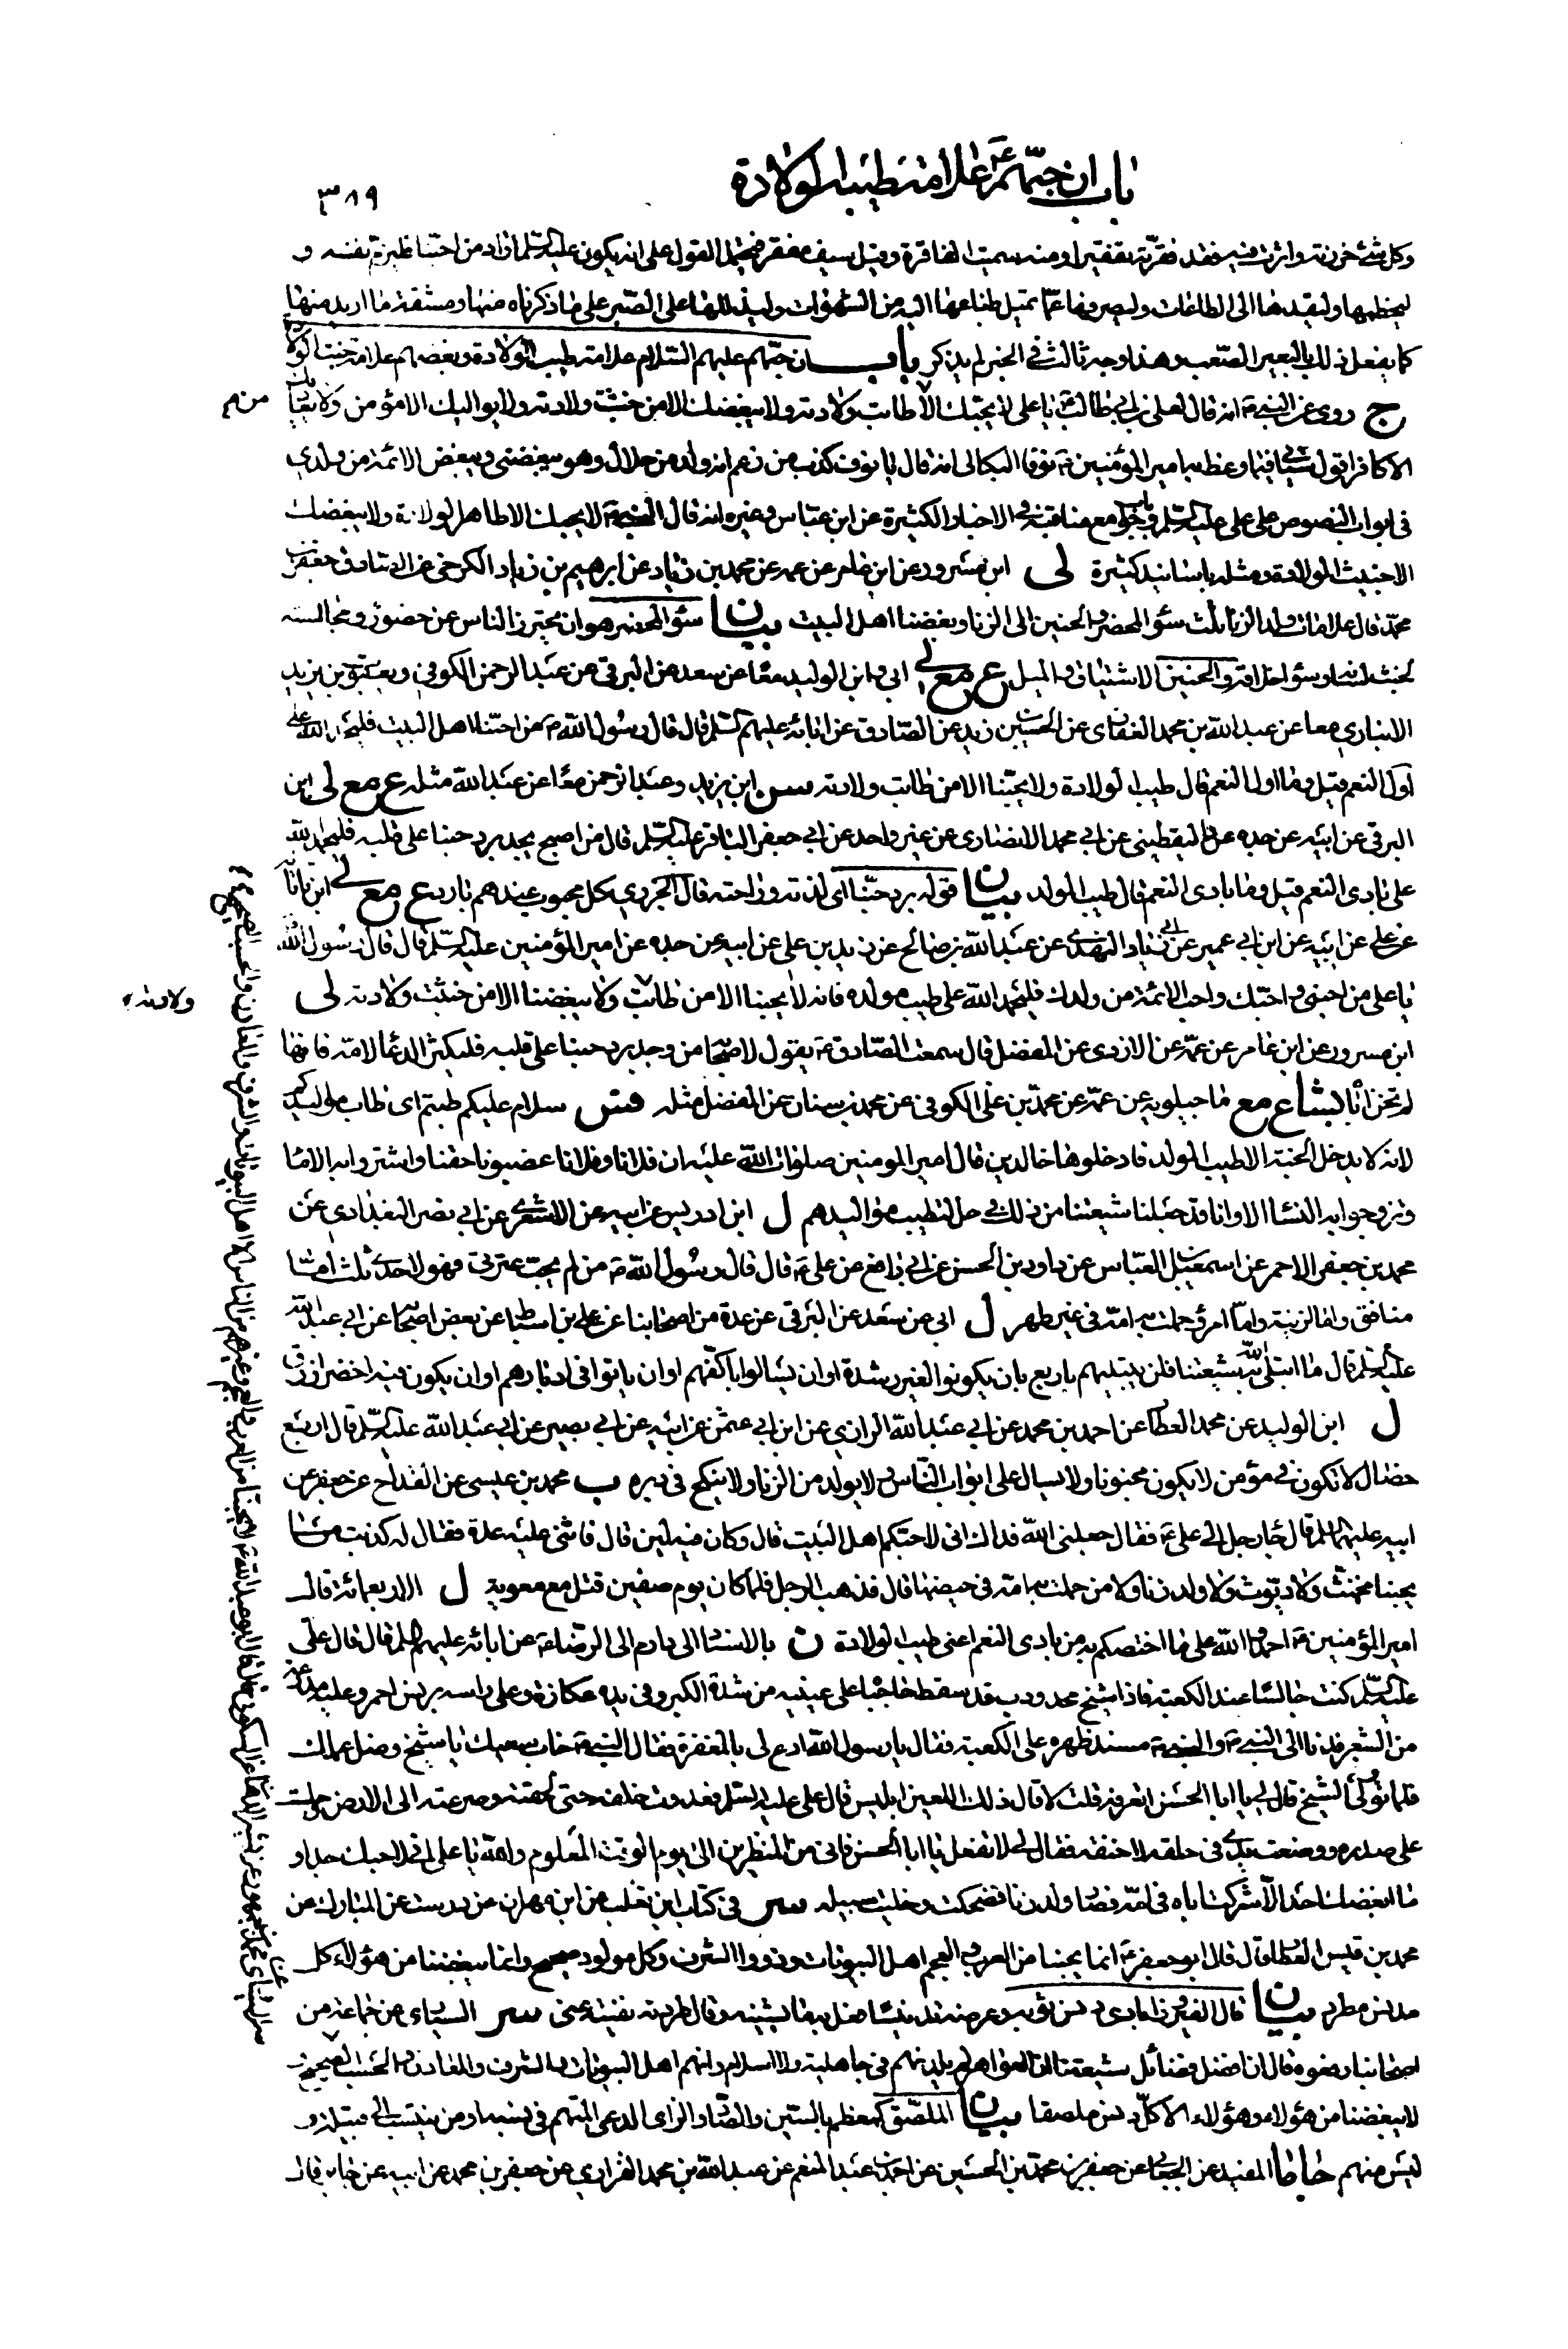 باب ان حبّهم ع علامة طيب الولادة
٣٨٩
وكل شئ حززته واثرت فيه فقد فقرته تفقيرا ومنه سميت الفاقرة وقيل سيف مفقر فيحتمل القول على انه يكون عليه السلم اراد من احبنا فليزم نفسه و
ليخطمها وليقدها الى الطاعات وليصرفها عما تميل طباعها اليه من الشهوات وليذللها على الصبر على ما ذكرناه منها ومشقة ما اريد منها
كما يفعل ذلك بالبعير الصعب وهذا وجه ثالث في الخبر لم يذكر باب ان حبّهم عليهم السلام علامة طيب الولادة وبغضهم علامة خبث الولادة
ج روى عن النبي ص انه قال لعلي بن ابي طالب ع يا على لا يحبك الا من طابت ولادته ولا يبغضك الا من خبثت ولادته ولا يواليك الا مؤمن ولا يعاديك
الا كافر اقول سيأتي فيما وعظ به امير المؤمنين ع نوفا البكالي انه قال يا نوف كذب من زعم انه ولد من حلال وهو يبغضني ويبغض الائمة من ولدي
في ابواب النصوص على علي عليه السلم وجوامع مناقبه في الاخبار الكثيرة عن ابن عباس وغيره انه قال النبي ص لا يحبك الا طاهر الولادة ولا يبغضك
الا خبيث الولادة ومثله باسانيد كثيرة لى ابن مسرور عن ابن عامر عن عمه عن محمد بن زياد عن ابرهيم بن زياد الكرخي عن الصادق جعفر بن
محمد قال علامات ولد الزنا ثلث سؤ المحضر والحنين الى الزنا وبغضنا اهل البيت بيان سؤ المحضر هو ان يحترز الناس عن حضوره ومجالسته
لخبث لسانه وسؤ اخلاقه والحنين الاشتياق والميل ع مع لى ابي وابن الوليد معا عن سعد عن البرقي عن عبد الرحمن الكوفي ويعقوب بن يزيد
الانباري معا عن عبد الله بن محمد الغفاري عن الحسين بن زيد عن الصادق عن ابائه عليهم السلم قال قال رسول الله ص من احبنا اهل البيت فليحمد الله على
اول النعم قيل وما اول النعم قال طيب الولادة ولا يحبنا الا من طابت ولادته سن ابن يزيد وعبد الرحمن معا عن عبد الله مثله ع مع لى ابن
البرقي عن ابيه عن جده عن اليقطيني عن ابي محمد الانصاري عن غير واحد عن ابي جعفر الباقر عليه السلم قال من اصبح يجد برد حبنا على قلبه فليحمد الله
على بادى النعم قيل وما بادى النعم قال طيب المولد بيان قوله برد حبنا اى لذته وراحته قال الجزري كل محبوب عندهم بارد ع مع لى ابن ناتانة
عن علي عن ابيه عن ابن ابي عمير عن ابي زياد النهدي عن عبد الله بن صالح عن زيد بن علي عن ابيه عن جده عن امير المؤمنين عليه السلم قال قال رسول الله
يا على من احبني واحبك واحب الائمة من ولدك فليحمد الله على طيب مولده فانه لا يحبنا الا من طابت ولا يبغضنا الا من خبثت ولادته لى
ولادته
ابن مسرور عن ابن عامر عن عمه عن الازدي عن المفضل قال سمعت الصادق ع يقول لاصحابه من وجد برد حبنا على قلبه فليكثر الدعا لامه فانها
لم تخن اباه بشا ع مع ماجيلويه عن عمه عن محمد بن علي الكوفي عن محمد بن سنان عن المفضل مثله فس سلام عليكم طبتم اى طاب مواليدكم
لانه لا يدخل الجنة الا طيب المولد فادخلوها خالدين قال امير المومنين صلوات الله عليه ان فلانا وفلانا غصبونا حقنا واشتروا به الاماء
وتزوجوا به النساء الا وانا قد جعلنا شيعتنا من ذلك في حل لتطيب مواليدهم ل ابن ادريس عن ابيه عن الاشعري عن ابي نصر البغدادي عن
محمد بن جعفر الاحمر عن اسمعيل بن العباس عن داود بن الحسن عن ابي رافع عن علي ع قال قال رسول الله ص من لم يحب عترتي فهو لاحدى ثلث اما
منافق واما لزنية واما امرؤ حملت به امه في غير طهر ل ابي عن سعد عن البرقي عن عدة من اصحابنا عن علي بن اسباط عن بعض اصحابه عن ابي عبد الله
عليه السلم قال ما ابتلى الله به شيعتنا فلن يبتليهم باربع بان يكونوا لغير رشدة او ان يسالوا باكفهم او ان ياتوا في ادبارهم او ان يكون فيهم اخضر ازرق
ل ابن الوليد عن محمد العطار عن احمد بن محمد عن ابي عبد الله الرازي عن ابن ابي عثمن عن ابيه عن ابي بصير عن ابي عبد الله عليه السلم قال اربع
خصال لا تكون في مؤمن لا يكون مجنونا ولا يسال على ابواب الناس ولا يولد من الزنا ولا ينكح في دبره ب محمد بن عيسى عن القداح عن جعفر عن
ابيه عليهما السلم قال جاء رجل الى علي ع فقال جعلني الله فداك اني لاحبكم اهل البيت قال وكان فيه لين قال فاثنى عليه عدة فقال له كذبت ما
يحبنا مخنث ولا ديوث ولا ولد زنا ولا من حملت به امه في حيضها قال فذهب الرجل فلما كان يوم صفين قتل مع معوية ل الاربعمائة قال
امير المؤمنين ع احمدوا الله على ما اختصكم به من بادى النعم اعنى طيب الولادة ن بالاسناد الى دارم الى الرضا ع عن ابائه عليهم السلم قال قال علي
عليه السلم كنت جالسا عند الكعبة فاذا شيخ محدودب قد سقط حاجباه على عينيه من شدة الكبر وفي يده عكازة وعلى راسه برنس احمر وعليه مدرعة
من الشعر فدنا الى النبي ص والنبي ص مسند ظهره على الكعبة فقال يا رسول الله ادع لي بالمغفرة فقال النبي ص خاب سعيك يا شيخ وضل عملك
فلما تولى الشيخ قال لي يا ابا الحسن اتعرفه قلت لا قال ذلك اللعين ابليس قال علي عليه السلم فعدوت خلفه حتى لحقته وصرعته الى الارض وجلست
على صدره ووضعت يدي في حلقه لاخنقه فقال لي لا تفعل يا ابا الحسن فاني من المنظرين الى يوم الوقت المعلوم والله يا على اني لاحبك جدا و
ما ابغضك احد الا شركت اباه في امه فصار ولد زنا فضحكت وخليت سبيله سر في كتاب ابن تغلب عن ابن مهران عن درست عن المبارك عن
محمد بن قيس العطار قال قال ابو جعفر ع انما يحبنا من العرب والعجم اهل البيوتات وذووا الشرف وكل مولود صحيح وانما يبغضنا من هؤلاء كل
مدنس مطرد بيان قال الفيروزابادي دنس ثوبه وعرضه تدنيسا فعل به ما يشينه وقال طردته نفيته عني سر السياري عن جماعة من
اصحابنا رفعوه قال ان افضل فضائل شيعتنا ان العواهر لم يلدنهم في جاهلية ولا اسلام وانهم اهل البيوتات والشرف والمعادن والحسب الصحيح
لا يبغضنا من هؤلاء وهؤلاء الا كل دنس ملصق بيان الملصق كمعظم بالسين والصاد والزاى الدعي المتهم في نسبه ومن ينتسب الى قبيلة و
ليس منهم جا ما المفيد عن الجعابي عن جعفر بن محمد بن الحسين عن احمد بن عبد المنعم عن عبد الله بن محمد الفزاري عن جعفر بن محمد عن ابيه عن جابر قال